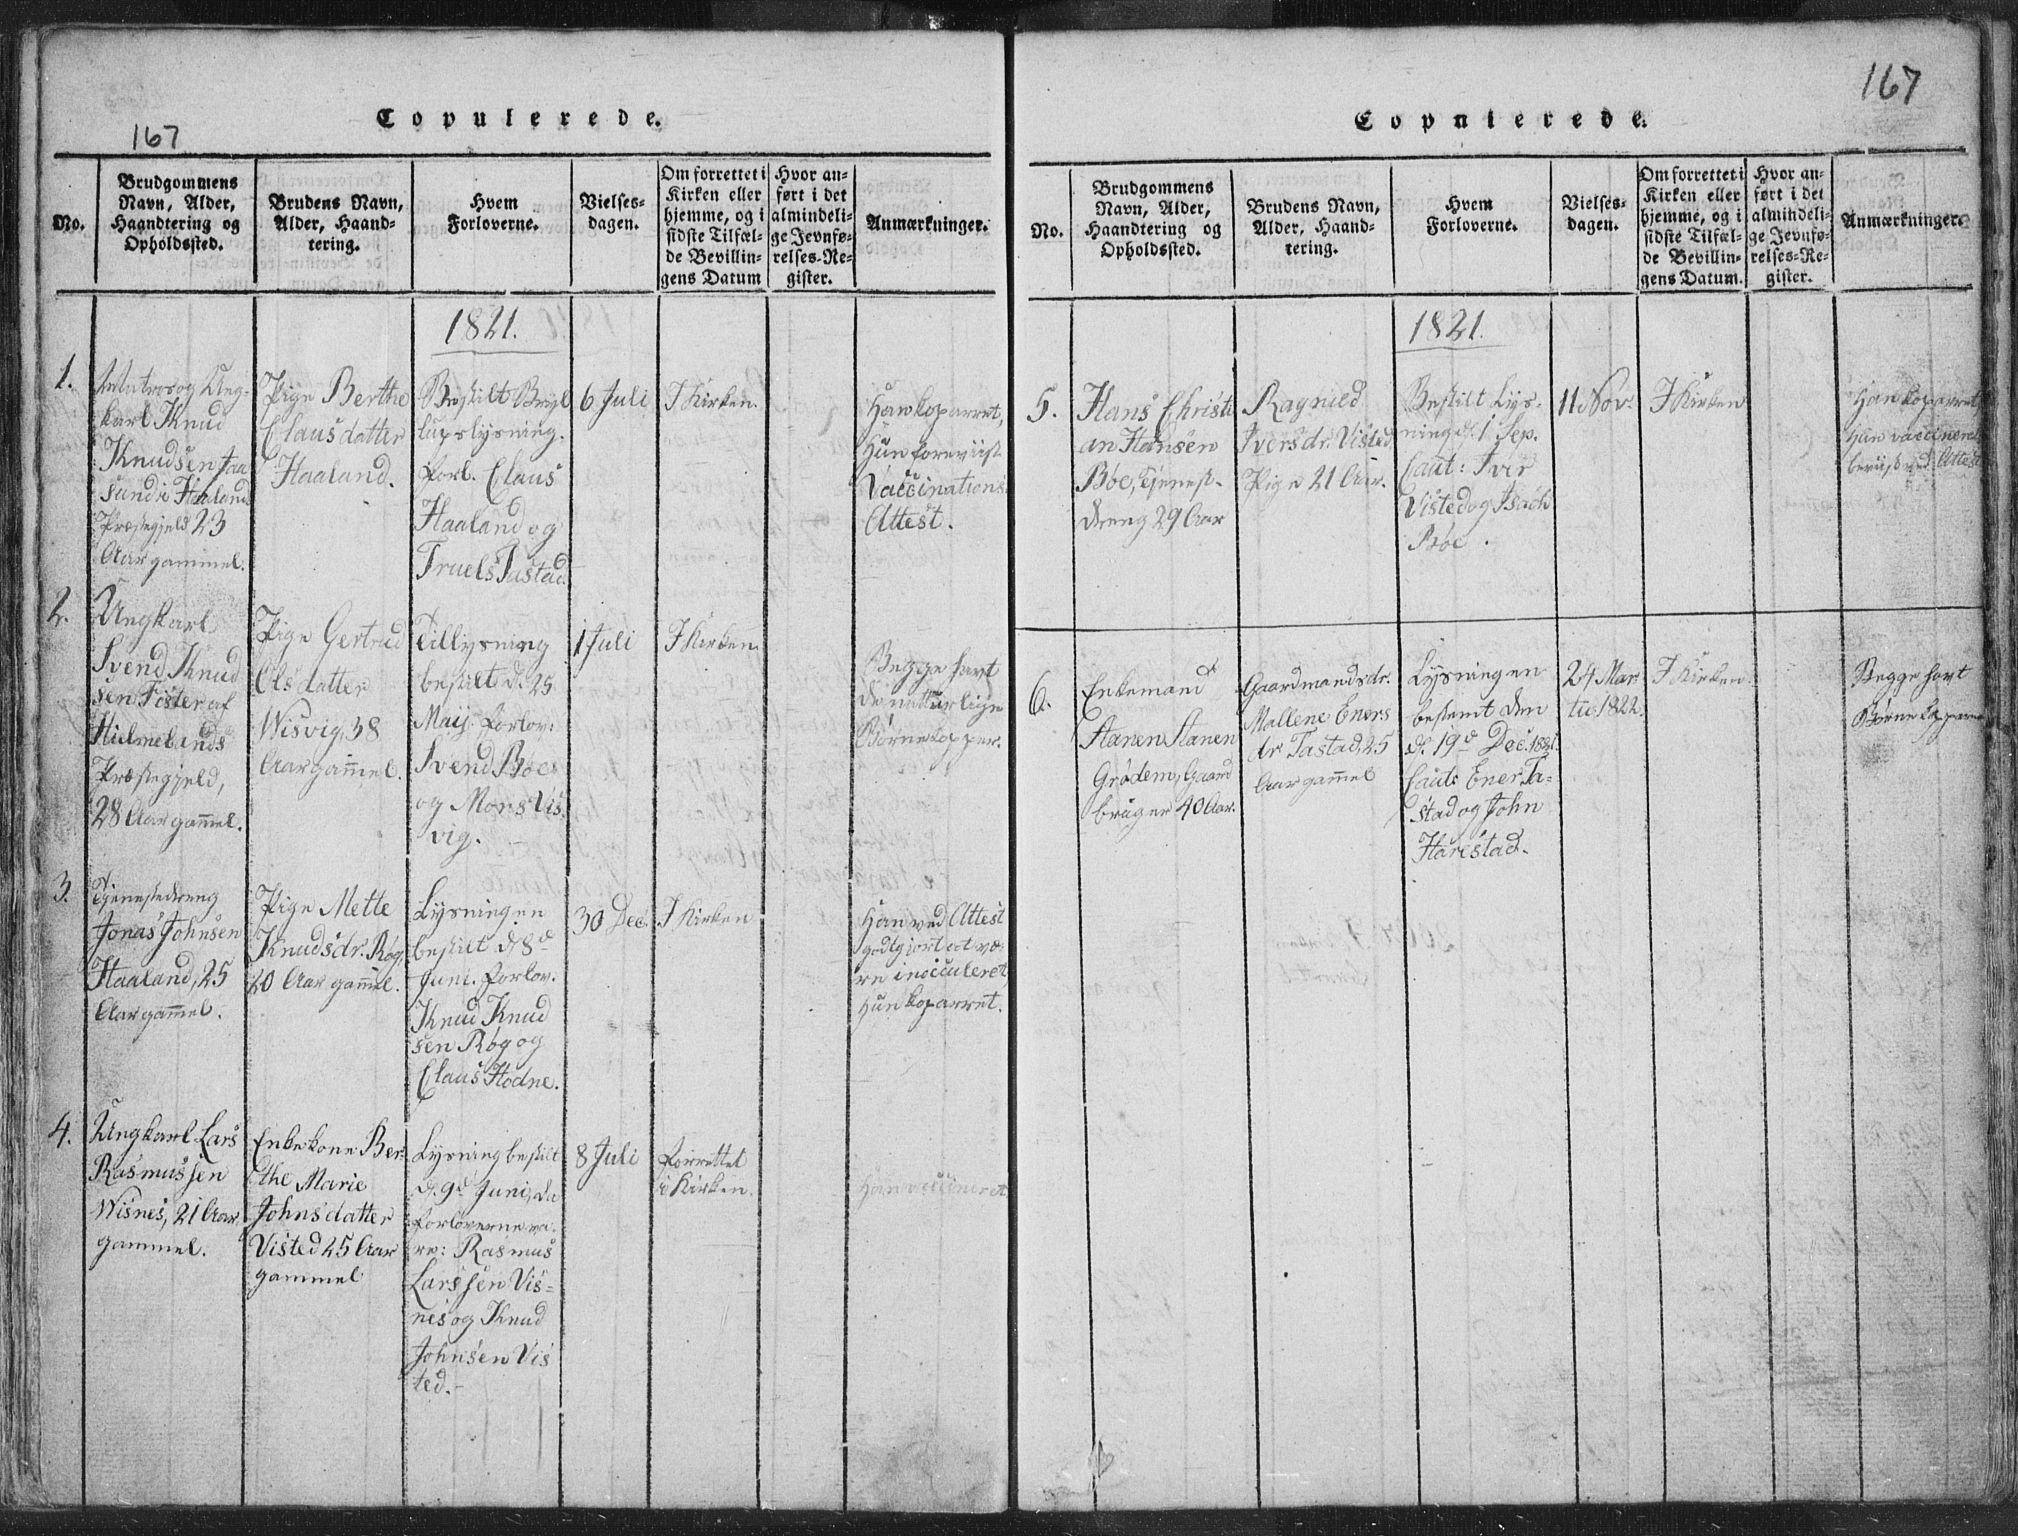 Copulerede.
167
No.
Brudgommens
Navn, Alder,
Haandtering og
Opholdssted.
Brudens Navn,
Alder, Haand-
tering.
Hvem
Forloverne.
Vielses-
dagen.
Om forrettet i
Kirken eller
hjemme, og i
sidste Tilfæl-
de Bevillin-
gens Datum
Hvor an-
ført i det
almindeli-
ge Jevnfø-
relses-Re-
gister.
Anmærkninger.
1821.
1.
og Ung-
karl Knud
Knudsen
sund i Haaland
Præstegjeld 23
Aar gammel.
Pige Berthe
Clausdatter
Haaland.
Bestilt
lupslysning.
Forl. Claus
Haaland og
Truels Tastad.
6 Juli
I Kirken.
Han koparret,
Hun foreviist
Vaccinations
Attest.
2.
Ungkarl
Svend Knud
sen Fister af
Hielmelands
Præstegjeld,
28 Aar gam̄el.
Pige Gertrud
Olsdatter
Wisvig, 38
Aar gam̄el.
Tillysning
bestilt d. 25
Maij. Forlov:
Svend Bøe
og Mons Vis
vig.
1 Juli
I Kirken.
Begge havt
de naturlige
Børnekopper.
3.
Tjenestedreng
Jonas Johnsen
Haaland, 25
Aar gam̄el.
Pige Mette
Knudsdr. Røg,
20 Aar gam̄el.
Lysningen
bestilt d. 8d
Juni. Forlov.
Knud Knud
sen Røg og
Claus Hodne.
30 Dec.
I Kirken
Han ved Attest
godtgjort at væ-
re inocculeret,
Hun koparret.
4.
Ungkarl Lars
Rasmussen
Wisnes, 21 Aar
gammel.
Enkekone Ber-
the Marie
Johnsdatter
Visted 25 Aar
gammel
Lysning bestilt
d. 9d Juni, da
Forloverne va-
re: Rasmus
Larssen Vis-
nes og Knud
Johnsen Vis
ted.-
8 Juli
Forrettet
i Kirken.
Han vaccineret
167
Copulerede.
No.
Brudgommens
Navn, Alder,
Haandtering og
Opholdssted.
Brudens Navn,
Alder, Haand-
tering.
Hvem
Forloverne.
Vielses-
dagen.
Om forrettet i
Kirken eller
hjemme, og i
sidste Tilfæl-
de Bevillin-
gens Datum.
Hvor an-
ført i det
almindeli-
ge Jevnfø-
relses-Re-
gister.
Anmærkninger.
1821.
5.
Hans Christi
an Hansen
Bøe, Tjenest-
dreng 29 Aar
Ragnild
Iversdr. Visted
Pige 21 Aar.
Bestilt Lys-
ning d. 1 Sep.
Caut: Iver
Visted og Isach
Bøe.
11 Nov.
I Kirken
Han koparret
Hun vaccineret
beviist ved Attest
6.
Enkemand
Hanen Hanen
Grødem, Gaard
bruger 40 Aar.
Gaardmandsdr.
Mallene Eners
dr Tastad, 25
Aar gam̄el
Lysningen
bestemt den
d. 19d Dec. 1821.
Caut: Ener Ta-
stad og John
Harestad.
24 Mar
tii 1822.
I Kirken.
Begge havt
Børnekopper